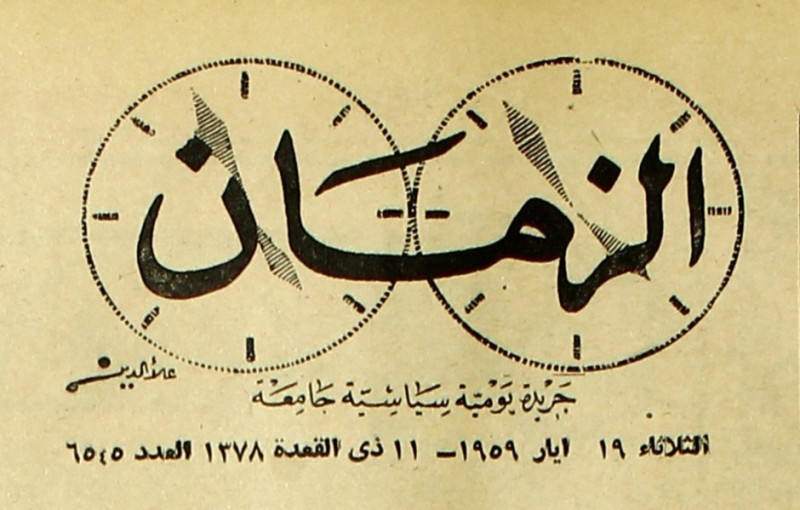 الزمان
علاء الدين
جريدة يومية سياسية جامعة
الثلاثاء ١٩ ايار ١٩٥٩ – ١١ ذى القعدة ١٣٧٨ العدد ٦٥٤٥